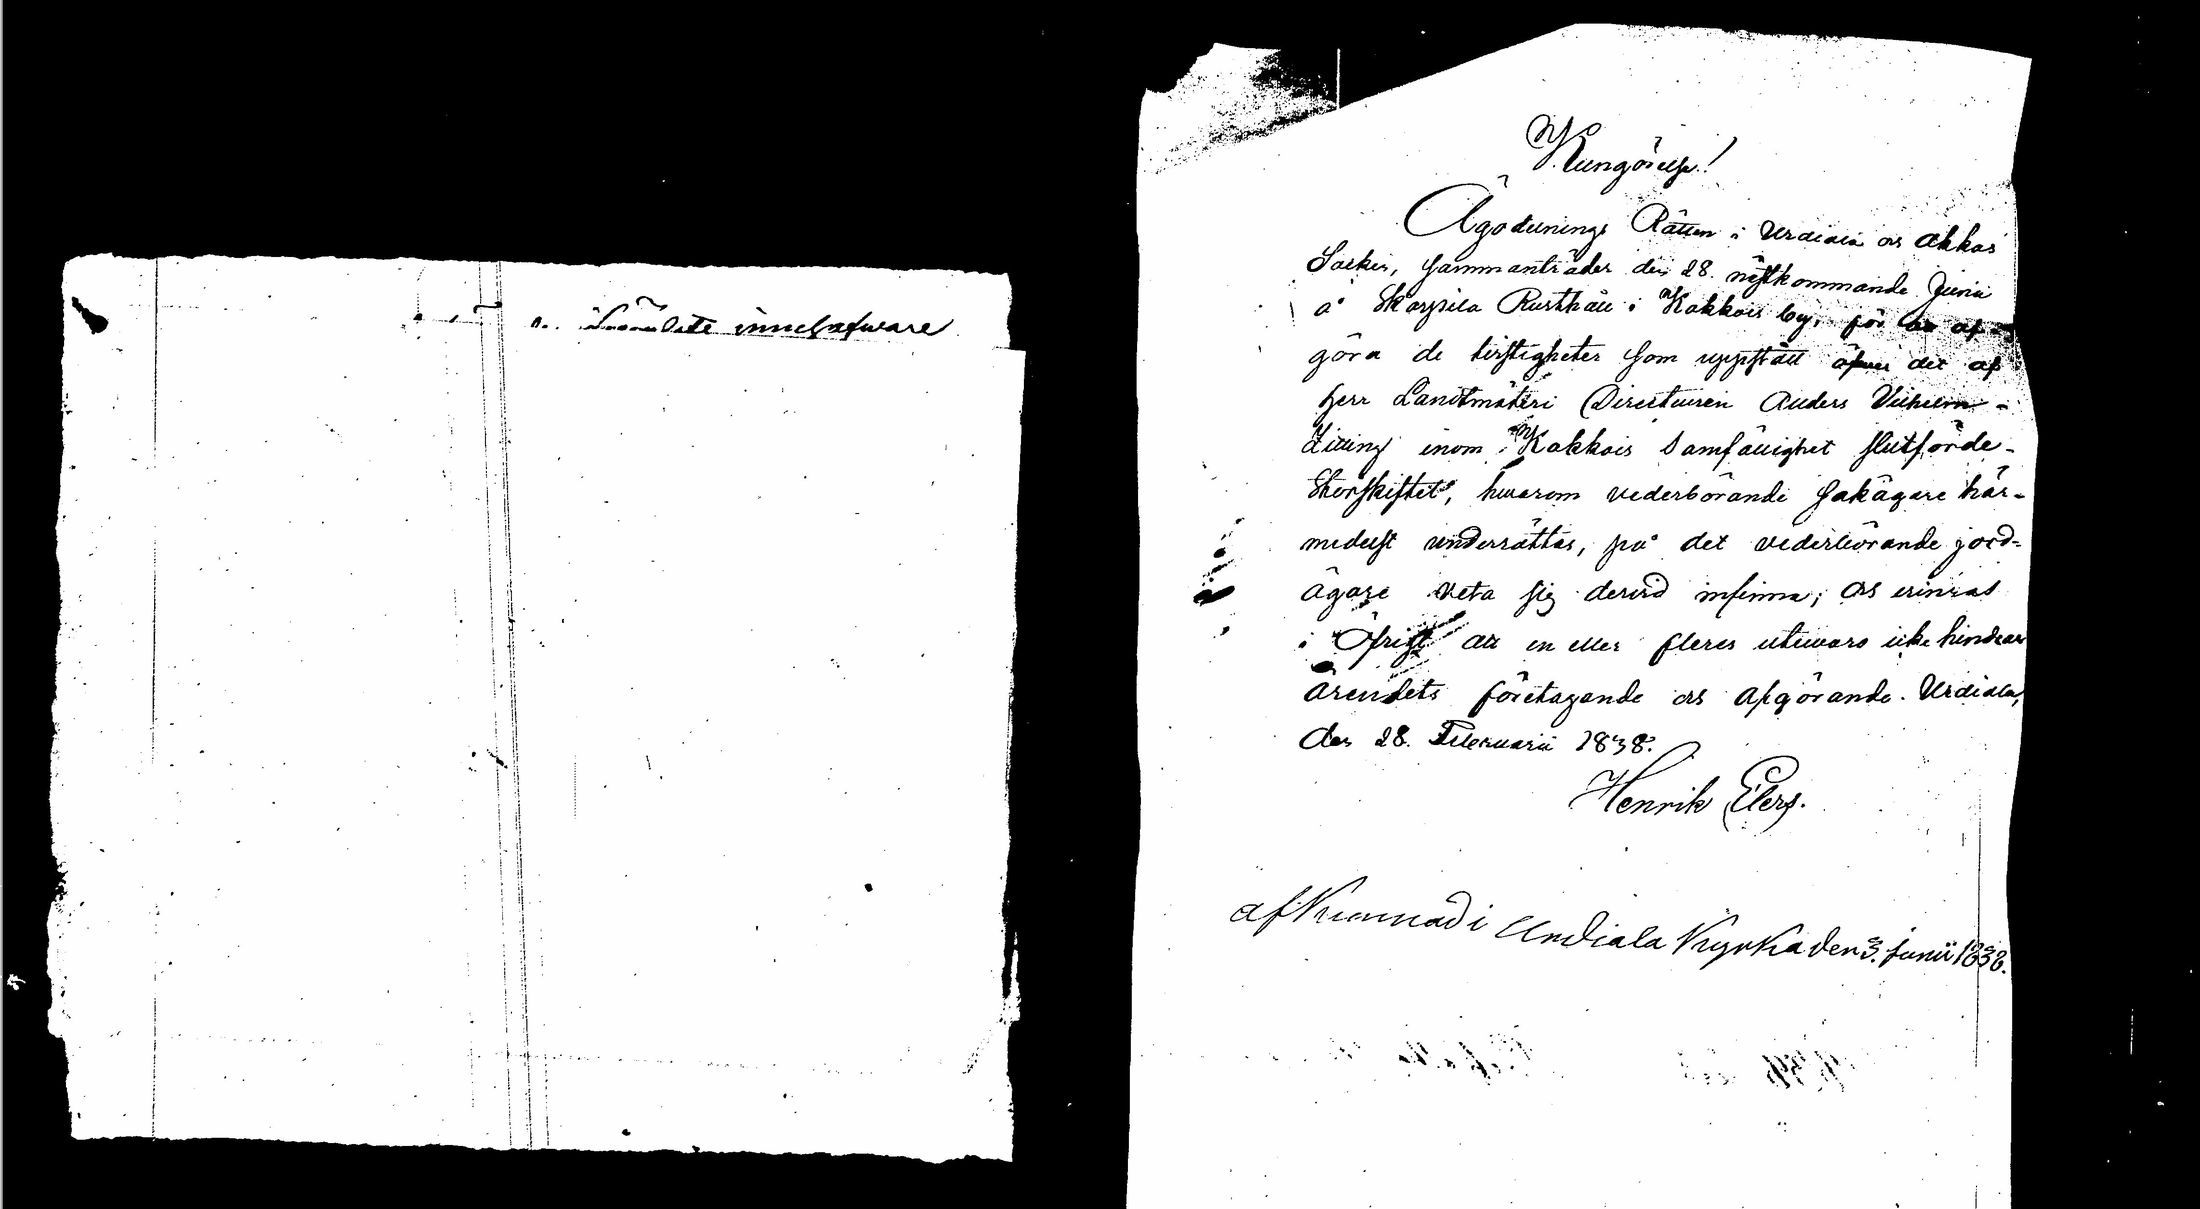 innehafware
Kungörelse!
Ägodelnings Rätten i Urdiala och Akkas
Socken, sammanträder den 28. nästkommande Junii
å Skarpila Rusthåll i Kakkois by, för att af-
göra de tvistigheter som uppstått öfver det af
herr Landtmäteri Directeuren Anders Vilhelm
Litting inom Kakkois Samfällighet slutförde
Storskiftet, hwarom vederbörande sakägare här-
medelst underrättas, på det vederbörande jord-
ägare veta sig dervid infinna; och erinras
i Öfrigt att en eller fleres utewaro icke hindrar
ärendets företagande och afgörande. Urdiala,
den 28. Februarii 1838.
Henrik Elers.
af Kunnad i Urdiala Kyrka den 3. Junii 1838.